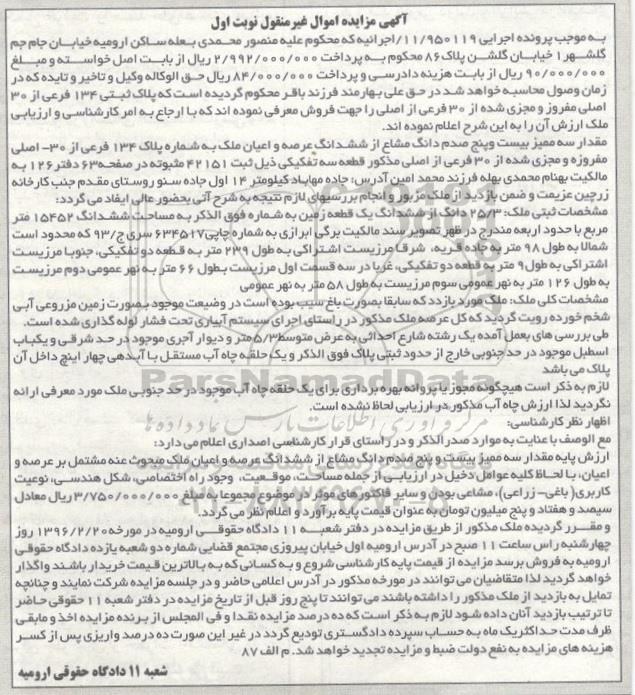 آگهی مزایده اموال غیرمنقول نوبت اول
به موجب پرونده اجرایی ۱۱/۹۵۰۱۱۹/ اجرائیه که محکوم علیه منصور محمدی بعله ساکن ارومیه خیابان جام جم
گلشهر۱ خیابان گلشن پلاک ۸۶ محکوم به پرداخت ۲/۹۹۲/۰۰۰/۰۰۰ ریال از بابت اصل خواسته و مبلغ
۹۰/۰۰۰/۰۰۰ ریال از بابت هزینه دادرسی و پرداخت ۸۴/۰۰۰/۰۰۰ ریال حق الوکاله وکیل و تاخیر و تایده که در
زمان وصول محاسبه خواهد شد در حق علی بهارمند فرزند باقر محکوم گردیده است که پلاک ثبتی ۱۳۴ فرعی از ۳۰
اصلی مفروز و مجزی شده از ۳۰ فرعی از اصلی را جهت فروش معرفی نموده اند که با ارجاع به امر کارشناسی و ارزیابی
ملک ارزش آن را به این شرح اعلام نموده اند.
مقدار سه ممیز بیست وپنج صدم دانگ مشاع از ششدانگ عرصه و اعیان ملک به شماره پلاک ۱۳۴ فرعی از ۳۰- اصلی
مفروزه و مجزی شده از ۳۰ فرعی از اصلی مذکور قطعه سه تفکیکی ذیل ثبت ۴۲۱۵۱ مثبوته در صفحه ۶۳ دفتر ۱۲۶ به
مالکیت بهنام محمدی بهله فرزند محمد امین آدرس: جاده مهاباد کیلومتر ۱۴ اول جاده سنو روستای مقدم جنب کارخانه
زرچین عزیمت و ضمن بازدید از ملک مزبور و انجام بررسیهای لازم نتیجه به شرح آتی بحضور عالی ایفاد می گردد:
مشخصات ثبتی ملک: ۲۵/۳ دانگ از ششدانگ یک قطعه زمین به شماره فوق الذکر به مساحت ششدانگ ۱۵۴۵۲ متر
مربع با حدود اربعه مندرج در ظهر تصویر سند مالکیت برگی ابرازی به شماره چاپی ۶۳۴۵۱۷ سری ج/۹۳ که محدود است
شمالا به طول ۹۸ متر به جاده قریه، شرقا مرزیست اشتراکی به طول ۲۳۹ متر به قطعه دو تفکیکی، جنوبا مرزیست
اشتراکی به طول ۹ متر به قطعه دو تفکیکی، غربا در سه قسمت اول مرزیست بطول ۶۶ متر به نهر عمومی دوم مرزیست
به طول ۱۲۶ متر به نهر عمومی سوم مرزیست به طول ۵۸ متر به نهر عمومی
مشخصات کلی ملک: ملک مورد بازدد که سابقا بصورت باغ سیب بوده است در وضیعت موجود بصورت زمین مزروعی آبی
شخم خورده رویت گردید که کل عرصه ملک مذکور در راستای اجرای سیستم آبیاری تحت فشار لوله گذاری شده است.
طی بررسی های بعمل آمده یک رشته شارع احداثی به عرض متوسط ۵/۳ متر و دیوار آجری موجود در حد شرقی و یکباب
اسطبل موجود در حد جنوبی خارج از حدود ثبتی پلاک فوق الذکر و یک حلقه چاه آب مستقل با آبدهی چهار اینچ داخل آن
پلاک می باشد
لازم به ذکر است هیچگونه مجوز یا پروانه بهره برداری برای یک حلقه چاه آب موجود در حد جنوبی ملک مورد معرفی ارائه
نگردید لذا ارزش چاه آب مذکور در ارزیابی لحاظ نشده است.
اظهار نظر کارشناسی:
مع الوصف با عنایت به موارد صدر الذکر و در راستای قرار کارشناسی اصداری اعلام می دارد:
ارزش پایه مقدار سه ممیز بیست و پنج صدم دانگ مشاع از ششدانگ عرصه و اعیان ملک مبحوث عنه مشتمل بر عرصه و
اعیان، با لحاظ کلیه عوامل دخیل در ارزیابی از جمله مساحت، موقعیت، وجود راه اختصاصی، شکل هندسی، نوعیت
کاربری( باغی- زراعی)، مشاعی بودن و سایر فاکتورهای موثر در موضوع مجموعا به مبلغ ۳/۷۵۰/۰۰۰/۰۰۰ ریال معادل
سیصد و هفتاد و پنج میلیون تومان به عنوان قیمت پایه برآورد و اعلام نظر می گردد.
و مقرر گردیده ملک مذکور از طریق مزایده در دفتر شعبه ۱۱ دادگاه حقوقی ارومیه در مورخه ۱۳۹۶/۲/۲۰ روز
چهارشنبه راس ساعت ۱۱ صبح در آدرس ارومیه اول خیابان پیروزی مجتمع قضایی شماره دو شعبه یازده دادگاه حقوقی
ارومیه به فروش برسد مزایده از قیمت پایه کارشناسی شروع و به کسانی که به بالاترین قیمت خریدار باشند واگذار
خواهد گردید لذا متقاضیان می توانند در مورخه مذکور در آدرس اعلامی حاضر و در جلسه مزایده شرکت نمایند و چنانچه
تمایل به بازدید از ملک مذکور را داشته باشند می توانند تا پنج روز قبل از تاریخ مزایده در دفتر شعبه ۱۱ حقوقی حاضر
تا ترتیب بازدید آنان داده شود لازم به ذکر است که ده درصد مزایده نقدا و فی المجلس از برنده مزایده اخذ و مابقی
ظرف مدت حداکثر یک ماه به حساب سپرده دادگستری تودیع گردد در غیر این صورت ده درصد واریزی پس از کسر
هزینه های مزایده به نفع دولت ضبط و مزایده تجدید خواهد شد. م الف ۸۷
شعبه ۱۱ دادگاه حقوقی ارومیه
ParsNamadData